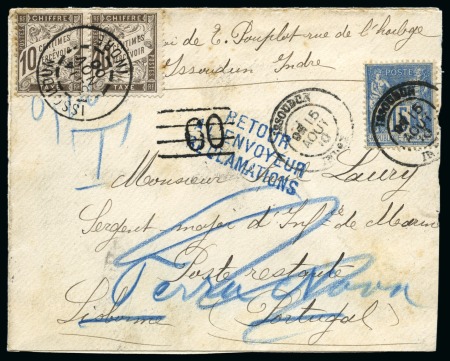 10 CENTIMES À RECEVOIR
CHIFFRE TAXE
CHIFFRE TAXE
POSTES
de E. Pouplot rue de l'horloge
Issoudun Indre
ISSOUDUN
ISSOUDUN 15 AOUT
T
60
RETOUR
ENVOYEUR
RÉCLAMATIONS
Monsieur Laury
Sergent major d'Inf.ie de Marine
Poste restante
Terra Nova
Lisbonne (Portugal)